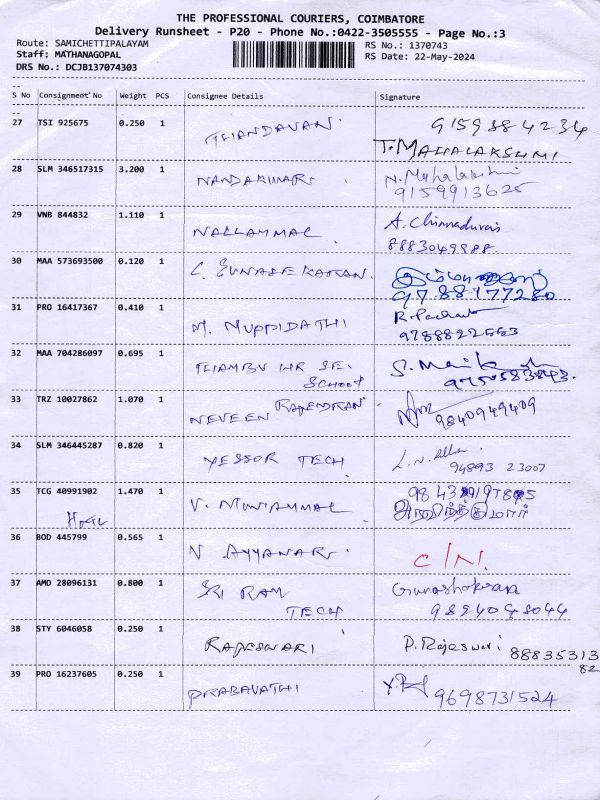 THE PROFESSIONAL COURIERS, COIMBATORE
Delivery Runsheet - P20 - Phone No.:0422-3505555 - Page No.:3
Route: SAMICHETTIPALAYAM
RS No.: 1370743
Staff; MATHANAGOPAL
RS Date: 22-May-2024
DRS No.: DCJB137074303
S No Consignment No Weight PCS Consignee Details Signature
27 TSI 925675 0.250 1 THANDAVAN 9159884234
T.MAHALAKSHMI
28 SLM 346517315 3.200 1 NANDAKUMAR N. Mahalakshmi
9159913625
29 VNB 844832 1.110 1 NALLAMMAL A. Chinnadurai
8883049888
30 MAA 573693500 0.120 1 C. GUNASEKARAN
9788177280
31 PRO 16417367 0.410 1 M. MUPPIDATHI
9788822553
32 MAA 704286097 0.695 1 THAMBU HR SE.
SCHOOL
9750583893.
33 TRZ 10027862 1.070 1 NEVEEN RAJENDRAN 9840949409
34 SLM 346445287 0.820 1 YESSOR TECH
94893 23007
35 TCG 40991902 1.470 1 V. MUNIAMMAL
அரவிந்த்குமார்
36 BOD 445799 0.565 1 V AYYANAR C/N.
37 AMD 28096131 0.800 1 SRI RAM
TECH 9894048044
38 STY 6046058 0.250 1 RAJESWARI P. Rajeswari 88835313
82
39 PRO 16237605 0.250 1 PRABAVATHI 9698731524